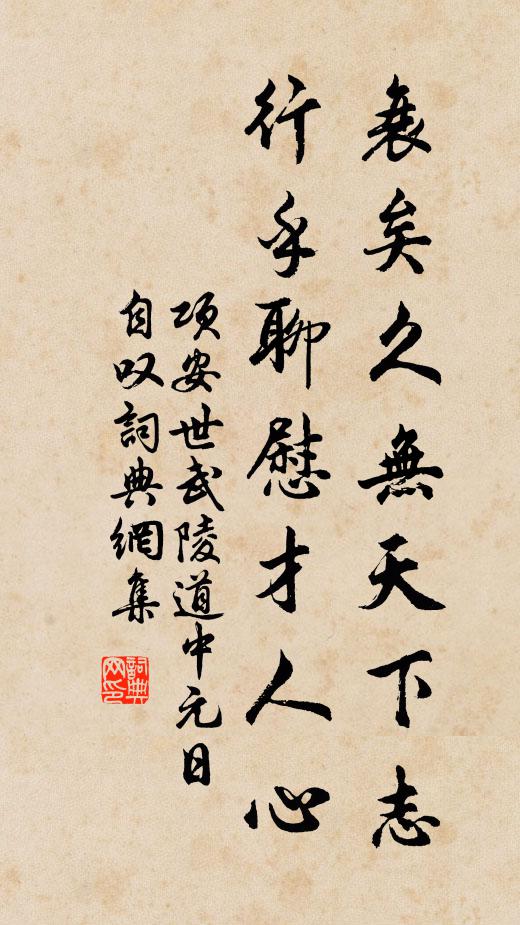 衰矣久無天下志
行乎聊慰才人心
項安世武陵道中元日
自叹詞典網集
詞典網印